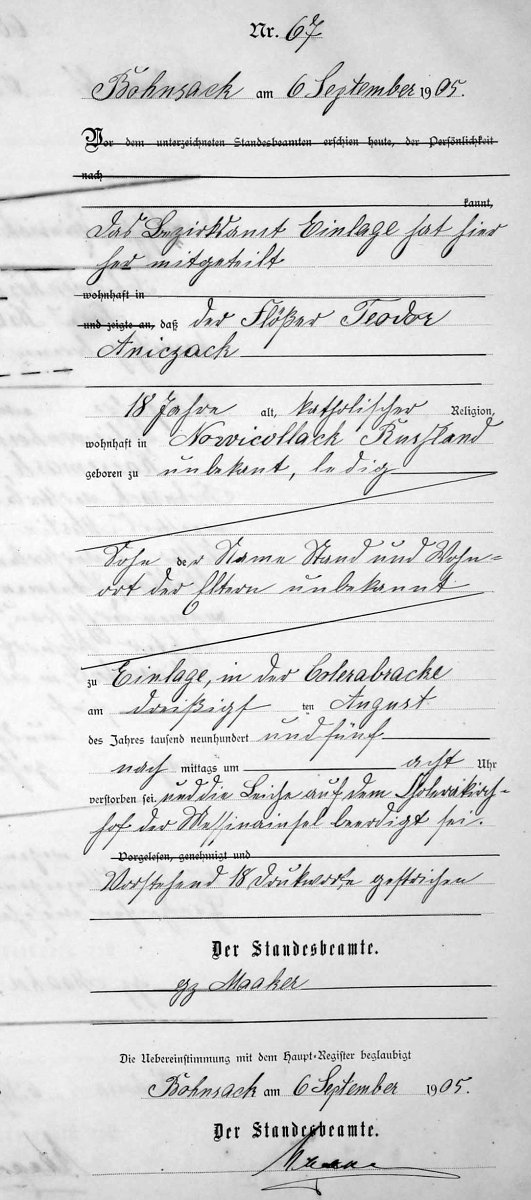 Nr. 67
Bohnsack am 6 September 1905.
Vor dem unterzeichneten Standesbeamten erschien heute, der Persönlichkeit
nach
kannt,
Das Bezirksamt Einlage hat hier
her mitgeteilt
wohnhaft in
und zeigte an, daß der Flößer Teodor
Aniczack
18 Jahre alt, katholischer Religion,
wohnhaft in Nowicollack Russland
geboren zu unbekant, ledig
Sohn der Name Stand und Wohn=
ort der Eltern unbekannt
zu Einlage, in der Colerabracke
am dreißigst ten August
des Jahres tausend neunhundert und fünf
nach mittags um acht Uhr
verstorben sei und die Leiche auf dem Cholerakirch-
hof der Messinainsel beerdigt sei.
Vorgelesen, genehmigt und
Vorstehend 18 Drukworte gestrichen
Der Standesbeamte.
gz Maaker
Die Uebereinstimmung mit dem Haupt-Register beglaubigt
Bohnsack am 6 September 1905.
Der Standesbeamte.